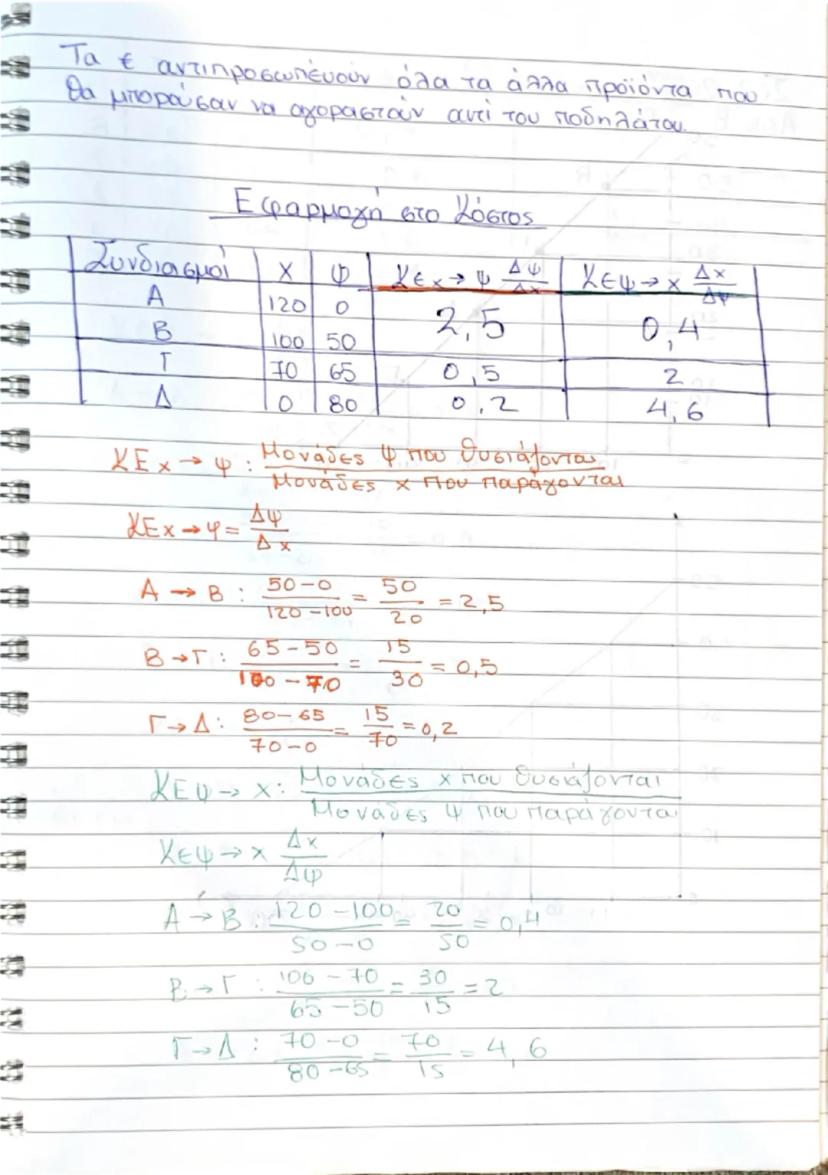 Τα € αντιπροσωπεύουν όλα τα άλλα προϊόντα που
θα μπορούσαν να αγοραστούν αντί του ποδηλάτου.
Εφαρμογή στο Κόστος
Συνδιασμοί Χ Ψ ΚΕx→ψ Δψ/Δx ΚΕψ→x Δx/Δψ
Α 120 0
Β 100 50 2,5 0,4
Γ 70 65 0,5 2
Δ 0 80 0,2 4,6
ΚΕx→ψ: Μονάδες ψ που θυσιάζονται / Μονάδες x που παράγονται
ΚΕx→ψ = Δψ/Δx
Α → Β : 50-0 / 120-100 = 50/20 = 2,5
Β→Γ : 65-50 / 100-70 = 15/30 = 0,5
Γ→Δ: 80-65 / 70-0 = 15/70 = 0,2
ΚΕψ→x: Μονάδες x που θυσιάζονται / Μονάδες ψ που παράγονται
ΚΕψ→x Δx/Δψ
Α→Β : 120-100 / 50-0 = 20/50 = 0,4
Β→Γ : 100-70 / 65-50 = 30/15 = 2
Γ→Δ : 70-0 / 80-65 = 70/15 = 4,6